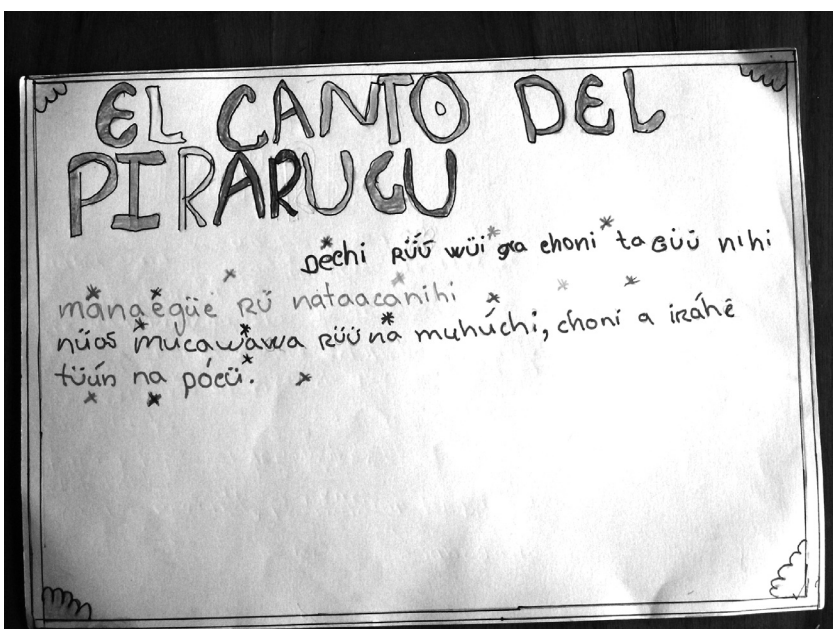 EL CANTO DEL
PIRARUCU
Dechi Rüú wüi gra choni ta güü nihi
mánaegüe rü nataacanihi
nüos mucawawa Rüü na muhúchi, choní a iráhẽ
tüün na pócü.